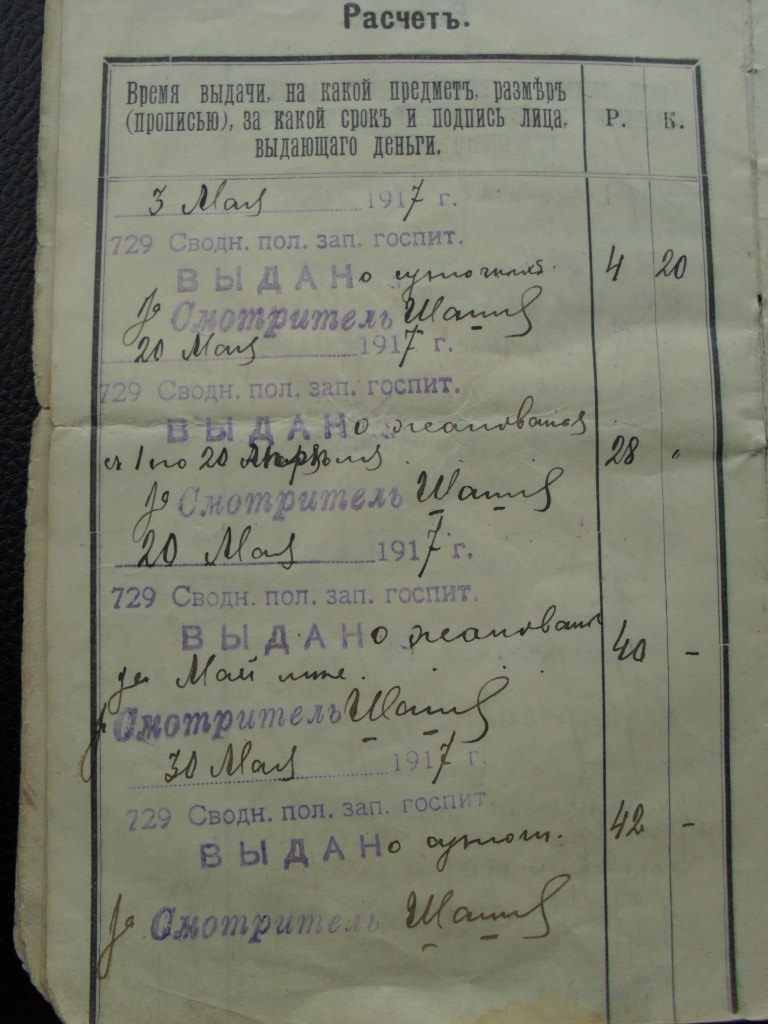 Расчетъ.
Время выдачи, на какой предметъ, размѣръ
(прописью), за какой срокъ и подпись лица,
выдающаго деньги.
Р. К.
3 Мая 1917 г.
729 Сводн. пол. зап. госпит.
ВЫДАНо суточныхъ. 4 20
За Смотритель
20 Мая 1917 г.
729 Сводн. пол. зап. госпит.
ВЫДАНо жалованья
съ 1 по 20 Апрѣля 28 "
За Смотритель
20 Мая 1917 г.
729 Сводн. пол. зап. госпит.
ВЫДАНо жалованья 40 -
за Май
За Смотритель
30 Мая 1917 г.
729 Сводн. пол. зап. госпит.
ВЫДАНо суточн. 42 -
За Смотритель